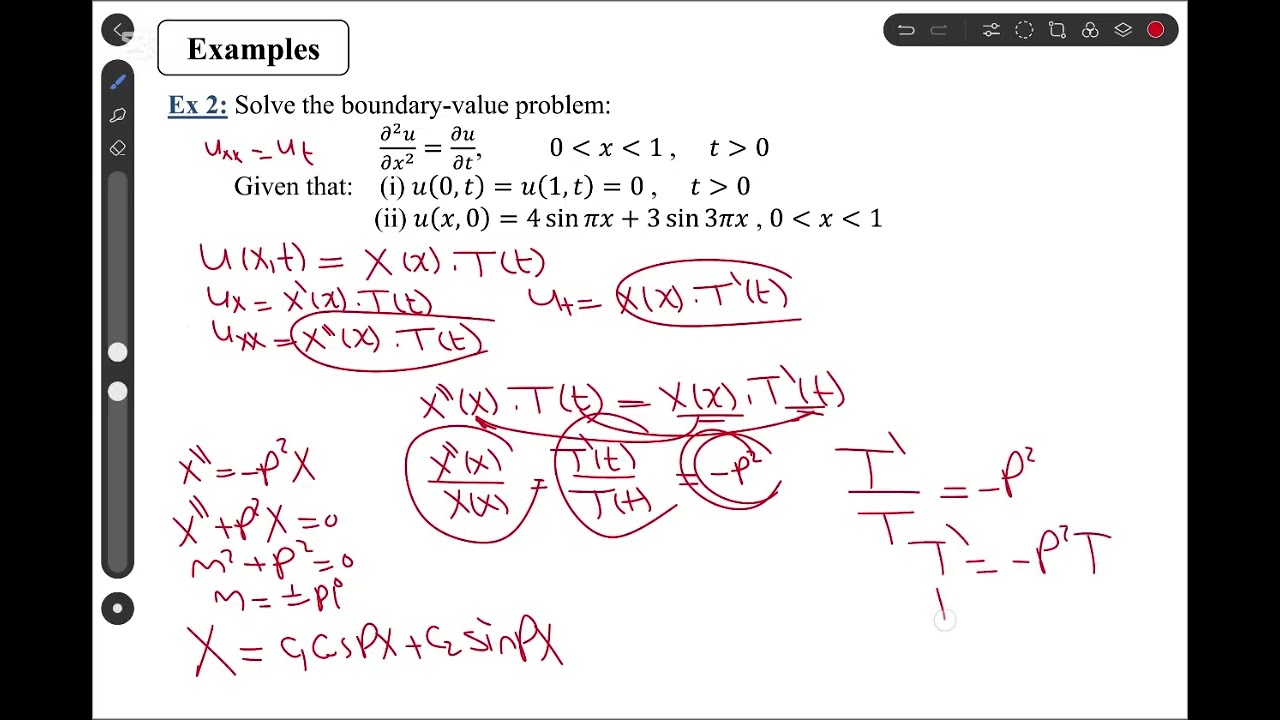 Examples
Ex 2: Solve the boundary-value problem:
uxx = ut ∂²u/∂x² = ∂u/∂t, 0 < x < 1 , t > 0
Given that: (i) u(0, t) = u(1, t) = 0 , t > 0
(ii) u(x, 0) = 4 sin πx + 3 sin 3πx , 0 < x < 1
U(x,t) = X(x) . T(t)
ux = X'(x) . T(t) ut = X(x) . T'(t)
uxx = X''(x) . T(t)
X''(x) . T(t) = X(x) . T'(t)
X''(x)/X(x) = T'(t)/T(t) = -P²
X'' = -P²X
X'' + P²X = 0
m² + P² = 0
m = ±Pi
X = C1 cos PX + C2 sin PX
T'/T = -P²
T' = -P²T